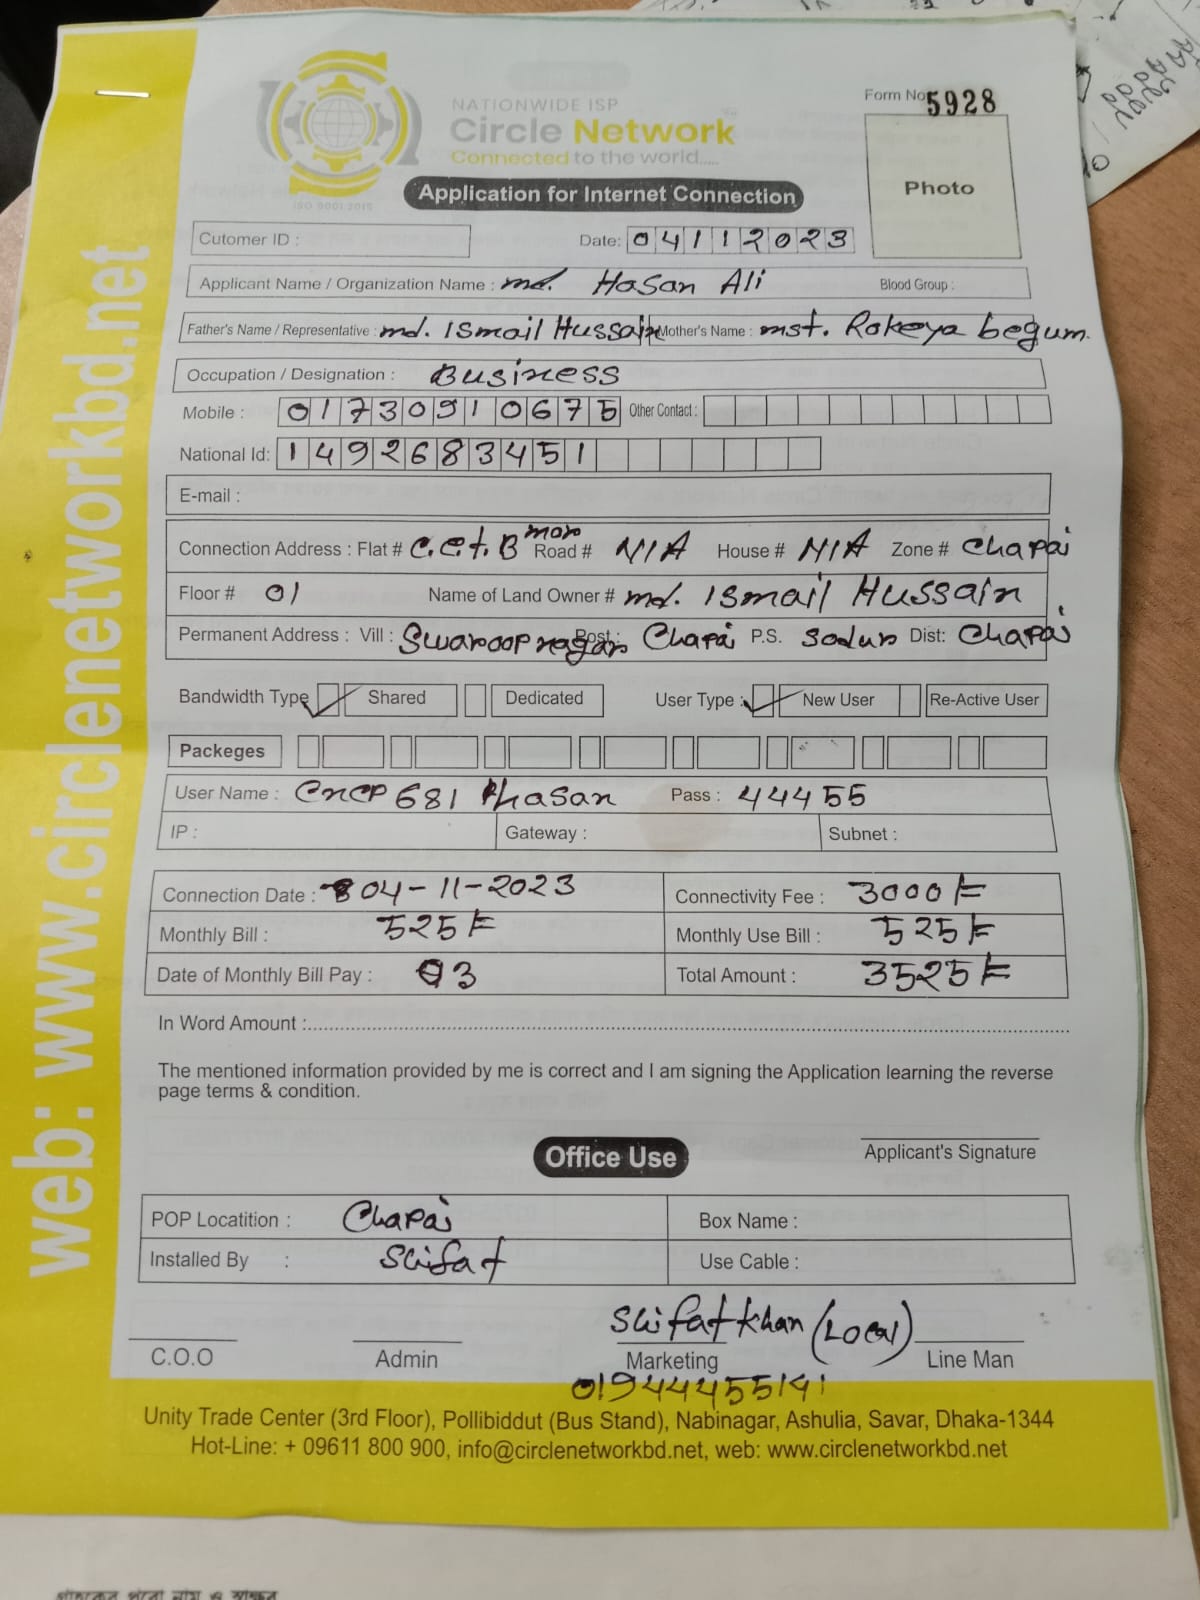 NATIONWIDE ISP
Circle Network
Connected to the world.....
ISO 9001:2015
Form No 5928
Photo
Application for Internet Connection
Cutomer ID :
Date: 04112023
Applicant Name / Organization Name : md. Hasan Ali Blood Group :
Father's Name / Representative : md. Ismail Hussain Mother's Name : mst. Rokeya begum.
Occupation / Designation : Business
Mobile : 01730910675 Other Contact :
National Id: 1492683451
E-mail :
Connection Address : Flat # C.C.t.B mor Road # N/A House # N/A Zone # Chapai
Floor # 01 Name of Land Owner # md. Ismail Hussain
Permanent Address : Vill : Swaroop nagar Post : Chapai P.S. Sodur Dist: Chapai
Bandwidth Type Shared Dedicated User Type : New User Re-Active User
Packeges
User Name : CNCP681 hasan Pass : 44455
IP : Gateway : Subnet :
Connection Date : 04-11-2023 Connectivity Fee : 3000/=
Monthly Bill : 525/= Monthly Use Bill : 525/=
Date of Monthly Bill Pay : 03 Total Amount : 3525/=
In Word Amount :
The mentioned information provided by me is correct and I am signing the Application learning the reverse
page terms & condition.
Applicant's Signature
Office Use
POP Locatition : Chapai Box Name :
Installed By : Shifat Use Cable :
Shifat khan (Local)
C.O.O Admin Marketing Line Man
01944455141
Unity Trade Center (3rd Floor), Pollibiddut (Bus Stand), Nabinagar, Ashulia, Savar, Dhaka-1344
Hot-Line: + 09611 800 900, info@circlenetworkbd.net, web: www.circlenetworkbd.net
web: www.circlenetworkbd.net